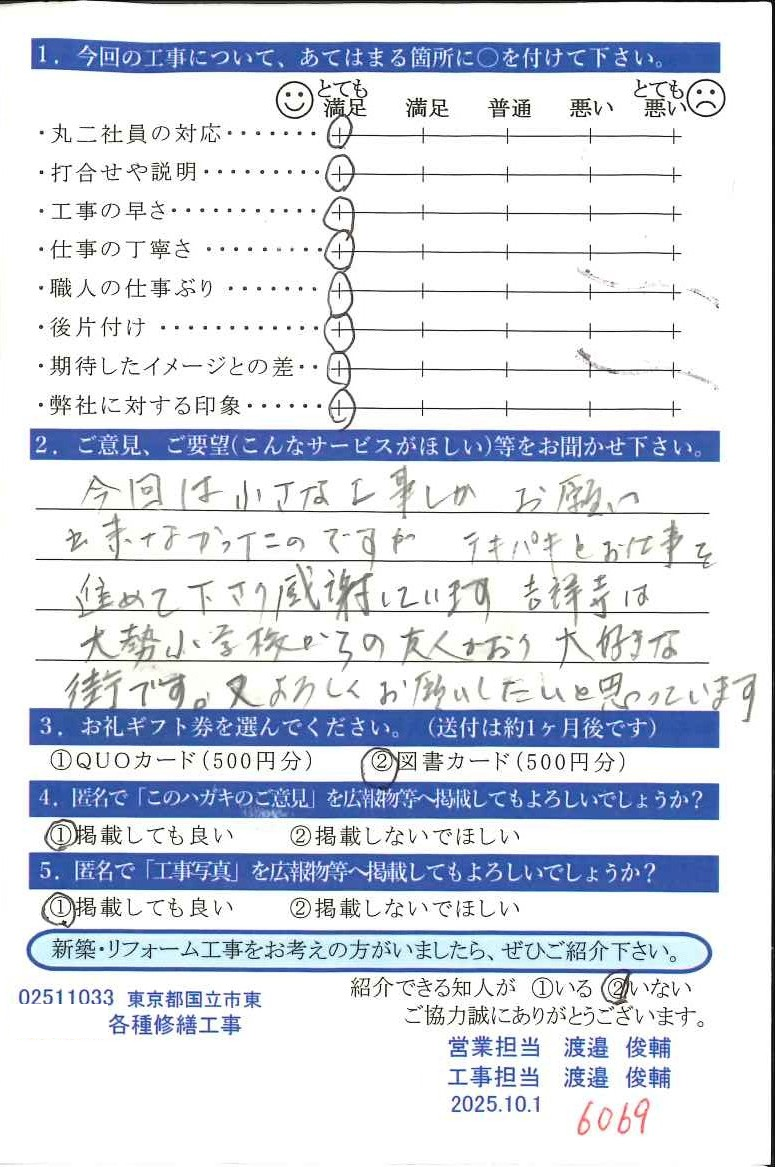 1. 今回の工事について、あてはまる箇所に○を付けて下さい。
とても満足 満足 普通 悪い とても悪い
・丸二社員の対応・・・・・・・
・打合せや説明・・・・・・・・・
・工事の早さ・・・・・・・・・・・
・仕事の丁寧さ・・・・・・・・・
・職人の仕事ぶり・・・・・・・
・後片付け・・・・・・・・・・・・
・期待したイメージとの差・・
・弊社に対する印象・・・・・・
2. ご意見、ご要望(こんなサービスがほしい)等をお聞かせ下さい。
今回は小さな工事しか お願い
出来なかったのですが テキパキとお仕事を
進めて下さり感謝しています 吉祥寺は
大勢小学校からの友人がおり 大好きな
街です。又よろしくお願いしたいと思っています
3. お礼ギフト券を選んでください。(送付は約1ヶ月後です)
①QUOカード(500円分) ②図書カード(500円分)
4. 匿名で「このハガキのご意見」を広報物等へ掲載してもよろしいでしょうか?
①掲載しても良い ②掲載しないでほしい
5. 匿名で「工事写真」を広報物等へ掲載してもよろしいでしょうか?
①掲載しても良い ②掲載しないでほしい
新築・リフォーム工事をお考えの方がいましたら、ぜひご紹介下さい。
紹介できる知人が ①いる ②いない
02511033 東京都国立市東
ご協力誠にありがとうございます。
各種修繕工事
営業担当 渡邉 俊輔
工事担当 渡邉 俊輔
2025.10.1
6069